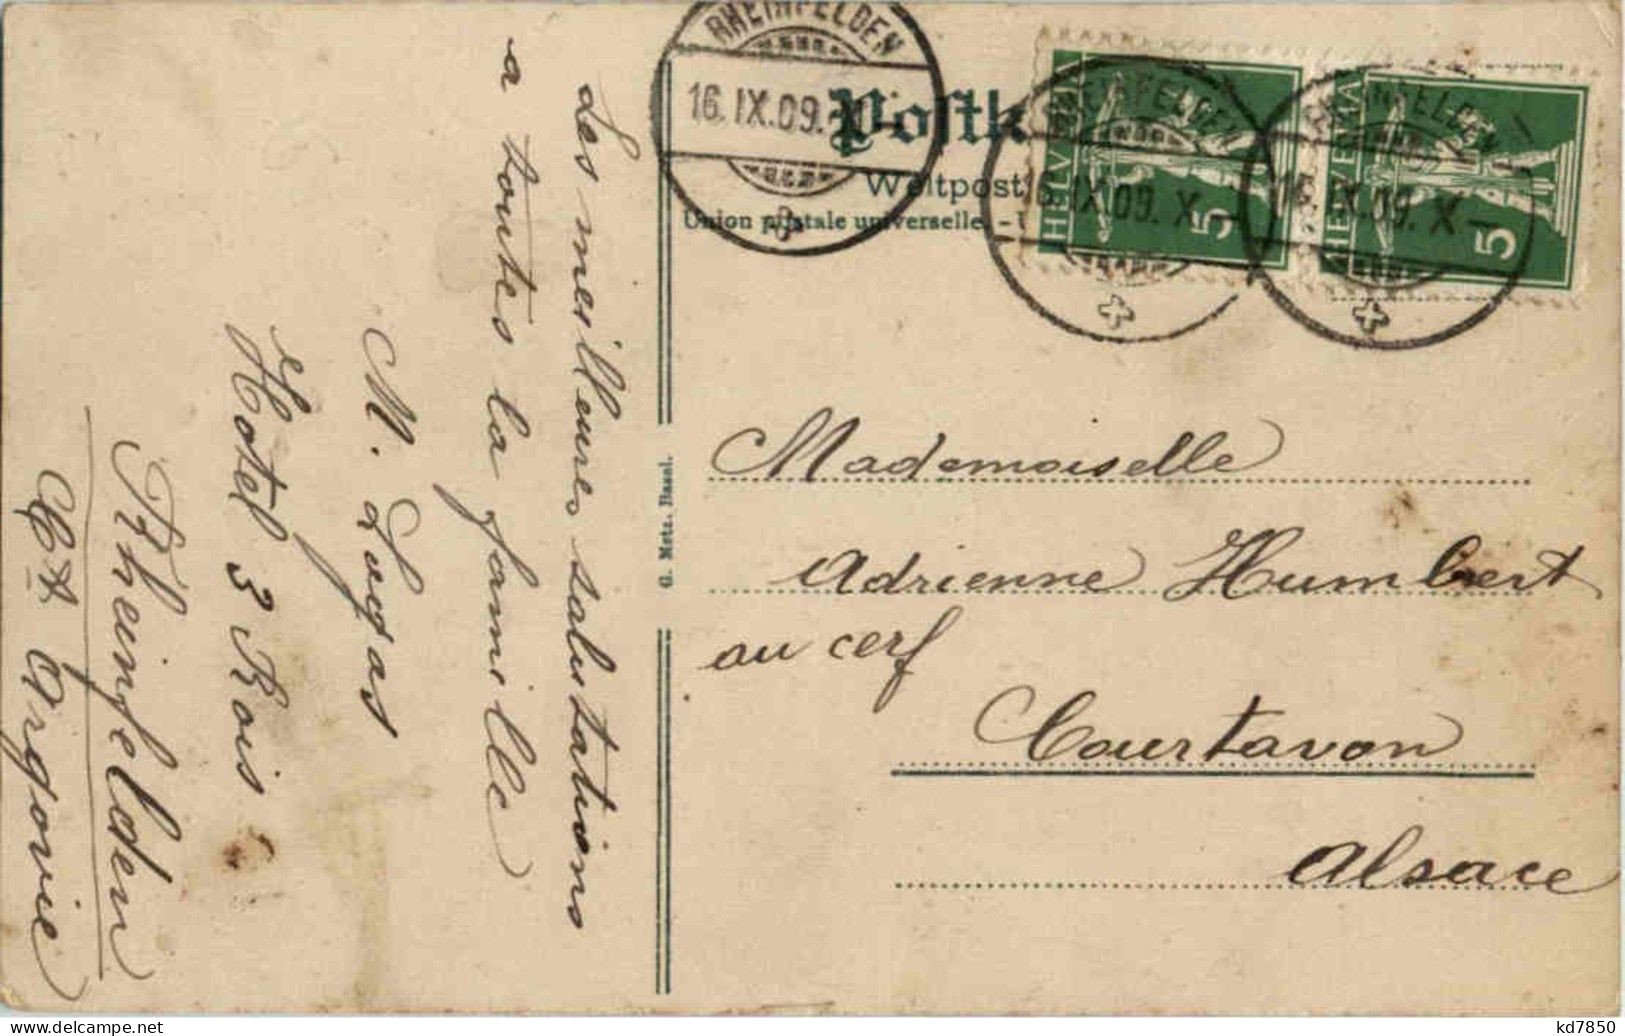 RHEINFELDEN
16.IX.09.
Postk
Weltpost
Union postale universelle. -
RHEINFELDEN
16.IX.09. X-
HELV
5
RHEINFELDEN
16.IX.09. X-
HELVETIA
5
Les meilleures salutations
a toutes la famille
M. Lugas
Hotel 3 Rois
Rheinfelden
Ct Argovie
G. Metz. Basel.
Mademoiselle
Adrienne Humbert
au cerf
Courtavon
Alsace
kd7850